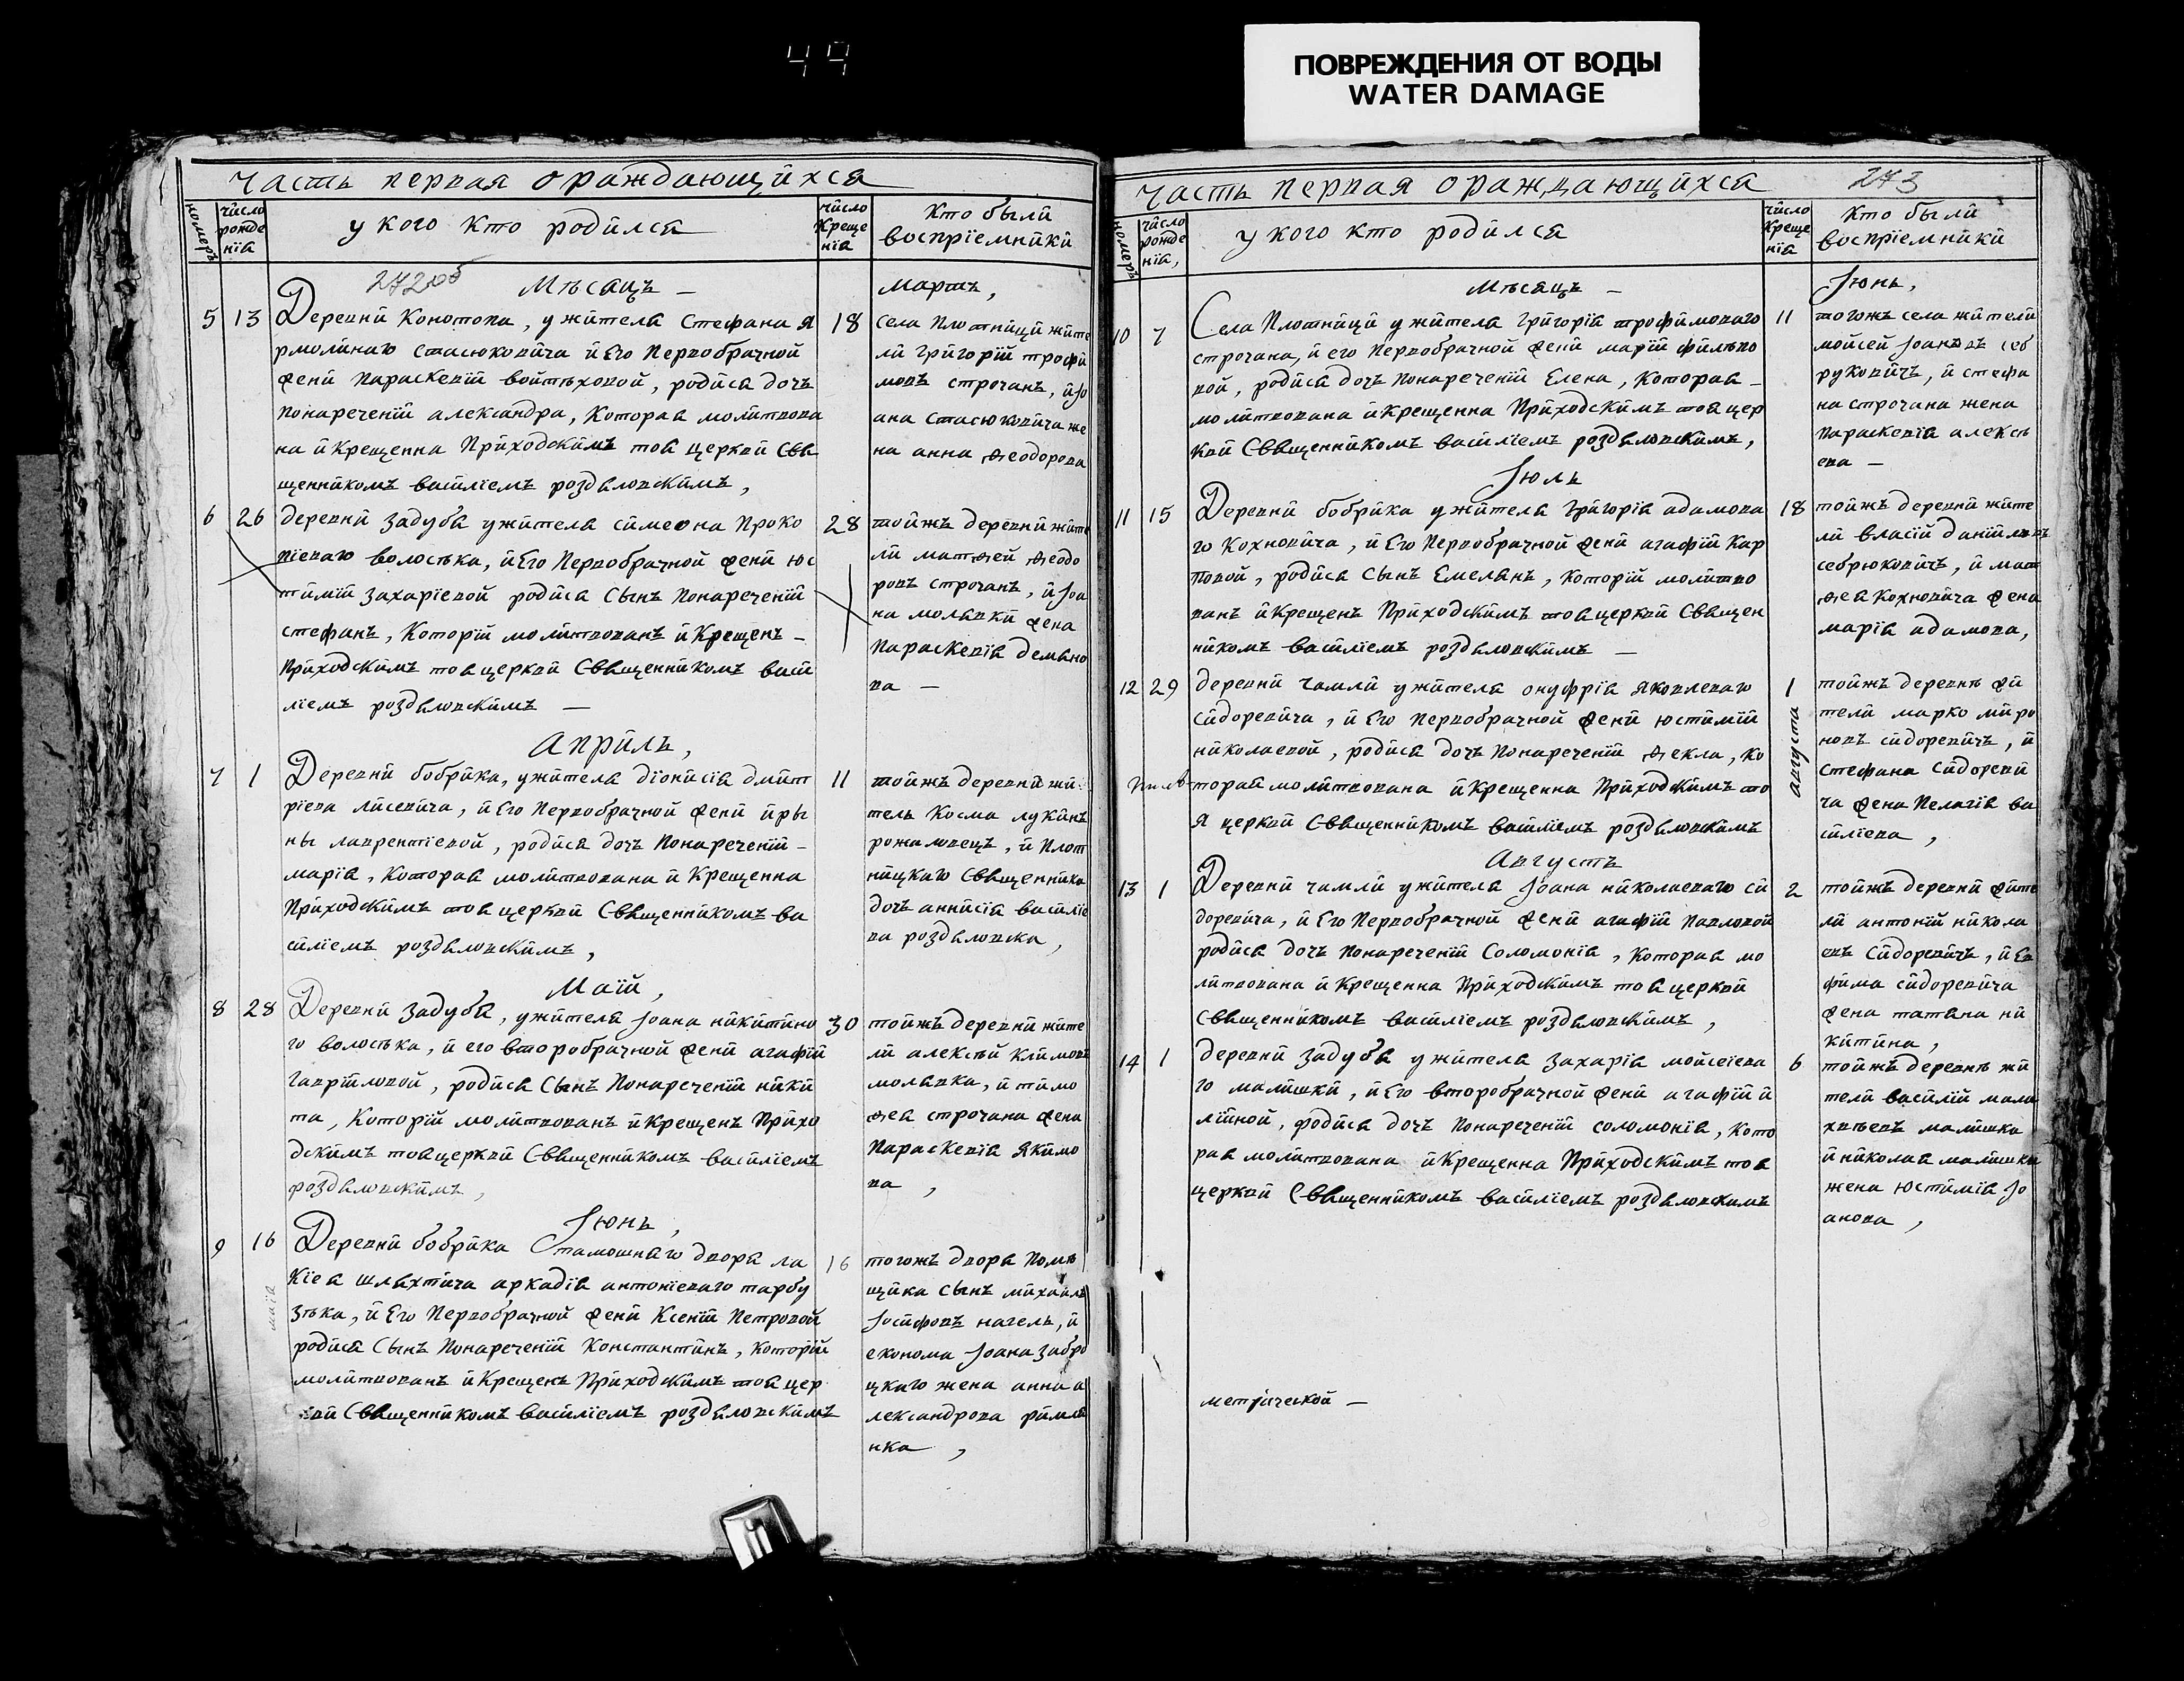 44
ПОВРЕЖДЕНИЯ ОТ ВОДЫ
WATER DAMAGE
часть первая ораждающихся
номеръ
число рожде нія
у кого кто родился
число Креще нія
Кто были воспріемники
272об
Мѣсяцъ — Мартъ,
5 13 Деревни Конотопа, ужителя Стефана Я
рмолинаго стасюковича и Его Первобрачной
жени Параскевіи войтѣховой, родися дочь
понареченіи александра, Которая молитвова
на и Крещенна Приходскимъ тоя церкви Свя
щенникомъ василіемъ роздяловскимъ,
18 села Плотници жите
ли григорій трофи
мовъ строчанъ, и Јо
ана стасюковича же
на анна ѳеодорова
6 26 деревни Задубя ужителя симеона Проко
піеваго волосѣка, и Его Первобрачной жени юс
тиміи захаріевой родися Сынъ Понареченіи
стефанъ, Которій молитвованъ и Крещенъ —
Приходскимъ тоя церкви Священникомъ васи
ліемъ роздяловскимъ —
28 тойжъ деревни жите
ли матѳей ѳеодо
ровъ строчанъ, и Јоа
на молявки жена
Параскевія демяно
ва —
Априль,
7 1 Деревни бобрика, ужителя діонисія дмит
ріева лисевича, и Его Первобрачной жени ири
ны лаврентіевой, родися дочь Понареченіи —
марія, Которая молитвована и Крещенна
Приходскимъ тоя церкви Священникомъ ва
силіемъ роздяловскимъ,
11 тойжъ деревни жи
тель Косма лукинъ
рожаловецъ, и Плот
ницкаго Священника
дочь аннисія василіе
ва роздяловска,
Маій,
8 28 Деревни Задубя, ужителя Јоана никитина
го волосѣка, и его второбрачной жени агафіи
гавриловой, родися Сынъ Понареченіи ники
та, Которій молитвованъ и Крещенъ Прихо
дскимъ тоя церкви Священникомъ василіемъ
роздяловскимъ,
30 тойжъ деревни жите
ли алексѣй климовъ
молявка, и тимо
ѳея строчана жена
Параскевія Якимо
ва,
Јюнь,
9 16 Деревни бобрика Стамошняго двора ла
маія
Кіея шляхтича аркадія антоніеваго тарбу
зѣка, и Его Первобрачной жени Ксеніи Петровой
родися Сынъ Понареченіи Константинъ, Которій
молитвованъ и Крещенъ Приходскимъ тоя цер
кви Священникомъ василіемъ роздяловскимъ
16 тогожъ двора Помѣ
щика сынъ михаилъ
Јосифовъ нагель, и
економа Јоана забро
цкаго жена анна а
лександрова римля
нка,
часть первая ораждающихся
273
номеръ
число рожде нія,
у кого кто родился
число Креще нія
Кто были воспріемники
Мѣсяцъ — Јюнь,
10 7 Села Плотници ужителя григорія трофимоваго
строчана, и его Первобрачной жени маріи филѣпо
вой, родися дочь Понареченіи Елена, Которая —
молитвована и Крещенна Приходскимъ тоя цер
кви Священникомъ василіемъ роздяловскимъ,
11 тогожъ села жители
мойсей Јоановъ себ
руковичъ, и стефа
на строчана жена
Параскевія алексѣ
ева —
Јюль
11 15 Деревни бобрика ужителя григорія адамова
го Кохновича, и Его Первобрачной жени агафіи Кар
повой, родися сынъ Емелянъ, Которій молитво
ванъ и Крещенъ Приходскимъ тоя церкви Священ
никомъ василіемъ роздяловскимъ —
18 тойжъ деревни жите
ли власій даниловъ
себрюковичъ, и мат
ѳея Кохновича жена
марія адамова,
12 29 деревни чамли ужителя онуфрія яковлеваго
сидоревича, и Его Первобрачной жени юстиміи
николаевой, родися дочь Понареченіи ѳекла, Ко
торая молитвована и Крещенна Приходскимъ то
я церкви Священникомъ василіемъ роздяловскимъ
1 августа тойжъ деревнѣ жи
тели марко миро
новъ сидоревичъ, и
Стефана Сидореви
ча жена Пелагія ва
силіева,
Августъ
13 1 Деревни чамли ужителя Јоана николаеваго си
доревича, и Его Первобрачной жени агафіи Павловой
родися дочь Понареченіи Соломонія, Которая мо
литвована и Крещенна Приходскимъ тоя церкви
Священникомъ василіемъ роздяловскимъ,
2 тойжъ деревни жите
ли антоній никола
евъ Сидоревичъ, и Ев
фима сидоревича
жена татяна ни
китина,
14 1 деревни Задубя ужителя захарія мойсеіева
го малишки, и Его второбрачной жени агафіи и
лійной, родися дочь Понареченіи соломонія, Кото
рая молитвована и Крещенна Приходскимъ тоя
церкви Священникомъ василіемъ роздяловскимъ
6 тойжъ деревнѣ жи
тели василій мала
хѣевъ малишка
и николая малишки
жена юстимія Јо
анова,
метрической —